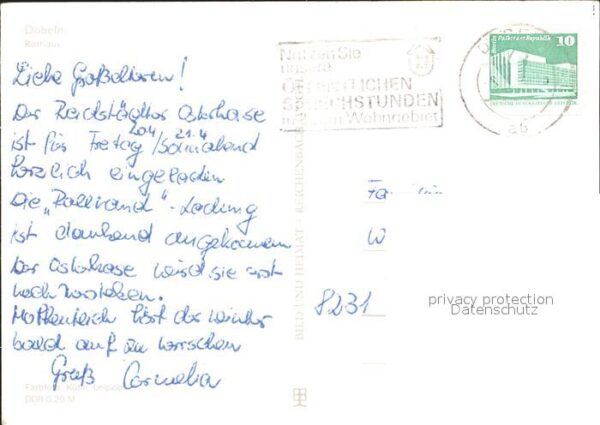 Döbeln
Rathaus
Liebe Großeltern!
Der Reichstädter Osterhase
ist für Freitag 20.4/Sonnabend 21.4
herzlich eingeladen
Die "Palland"-Ladung
ist dankend angekommen
Der Osterhase wird sie erst
noch verstecken.
Hoffentlich hört der Winter
bald auf zu herrschen
Gruß Cornelia
Farbfoto: Leipzig
DDR 0,20 M
BILD UND HEIMAT REICHENBACH
Nutzen Sie
unsere
ÖFFENTLICHEN
SPRECHSTUNDEN
Wohngebiet
ab
10
Palast der Republik
DEUTSCHE DEMOKRATISCHE REPUBLIK
Fa
W
8231
privacy protection
Datenschutz